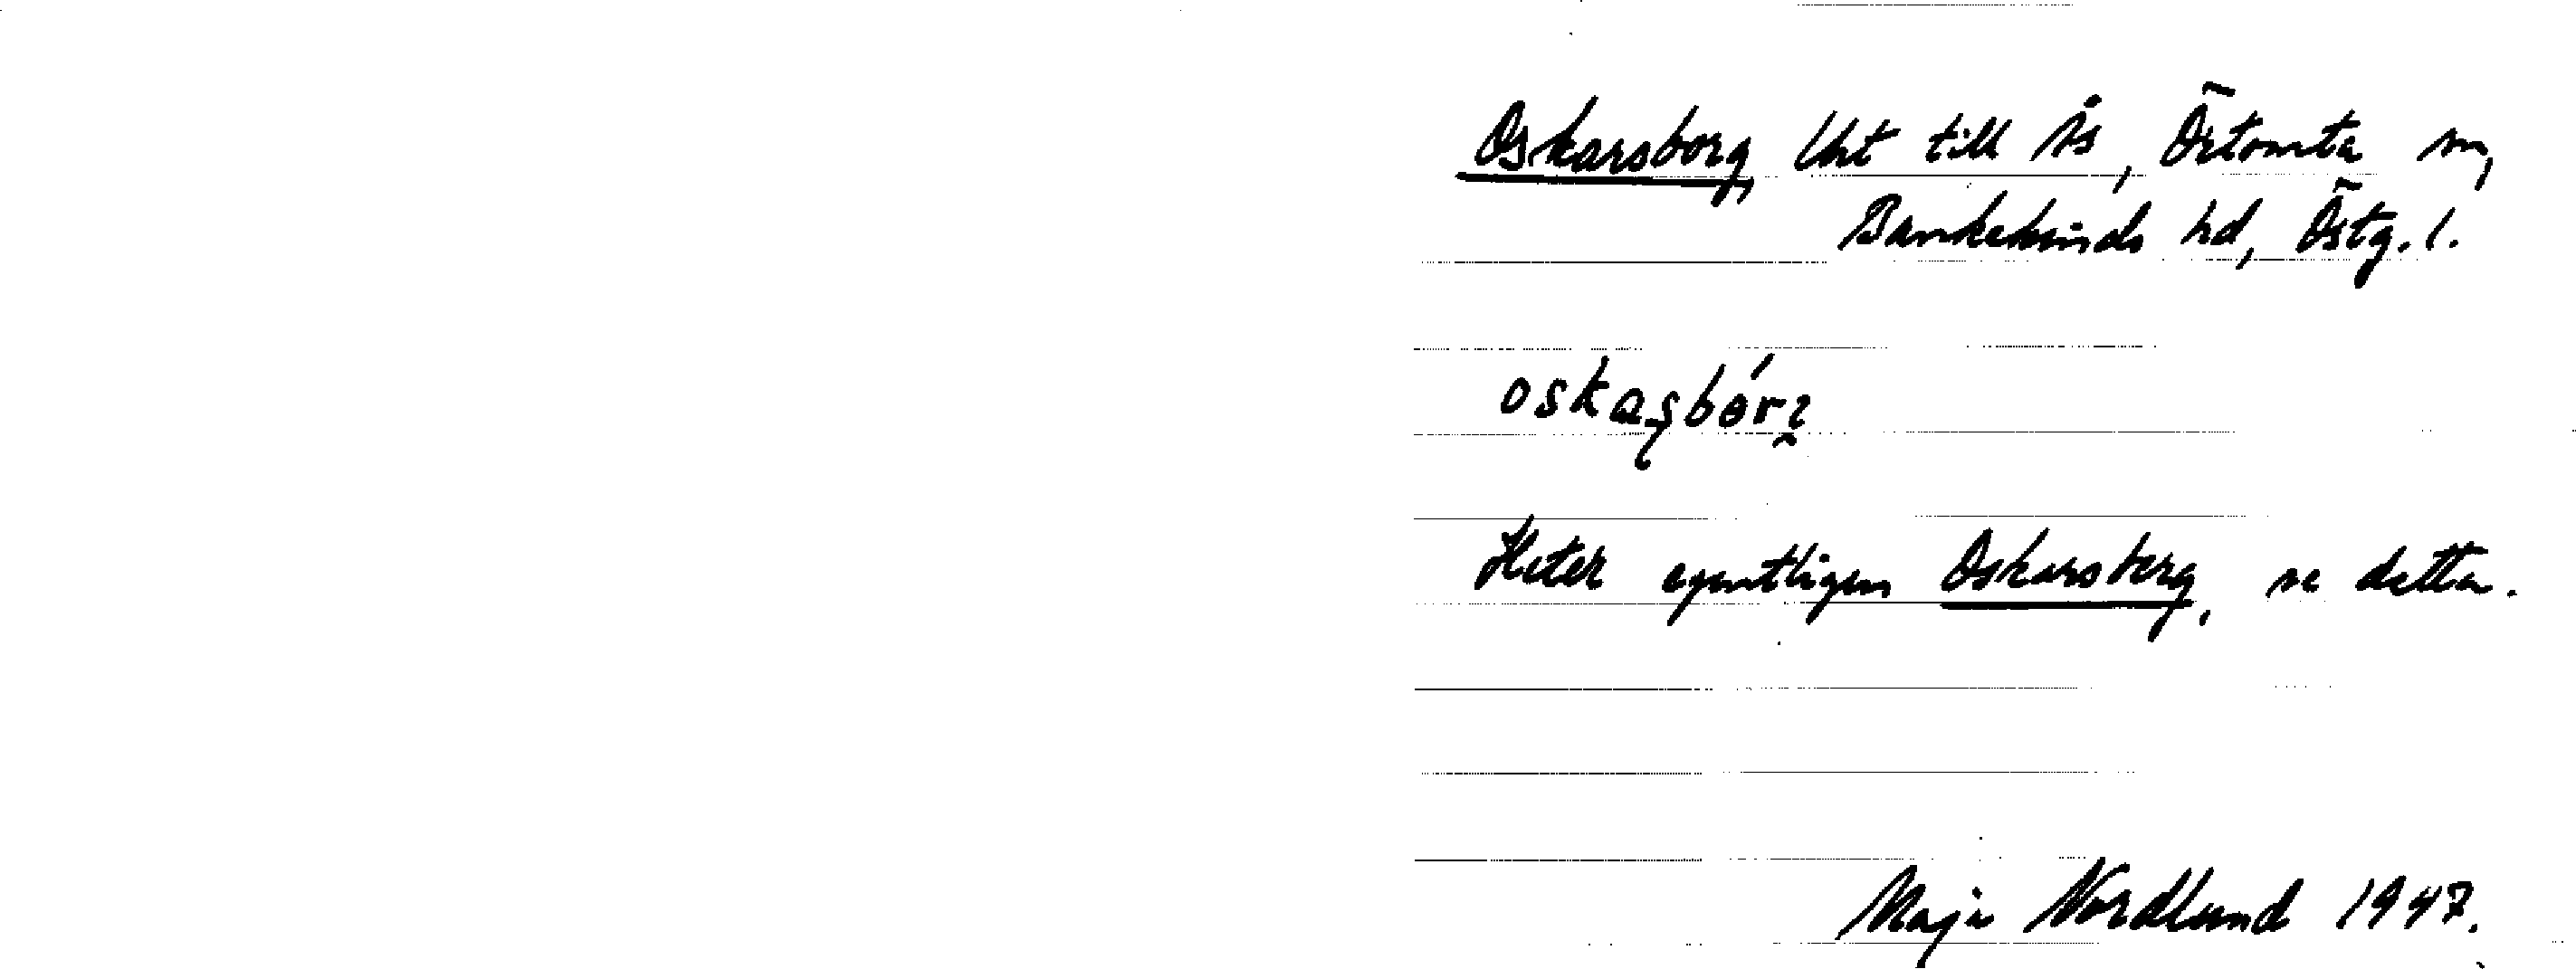 Oskarsborg, lht till Ås, Örtomta sn,
Bankekinds hd, Östg. l.
Heter egentligen Oskarsberg, se detta.
Maja Nordlund 1947.